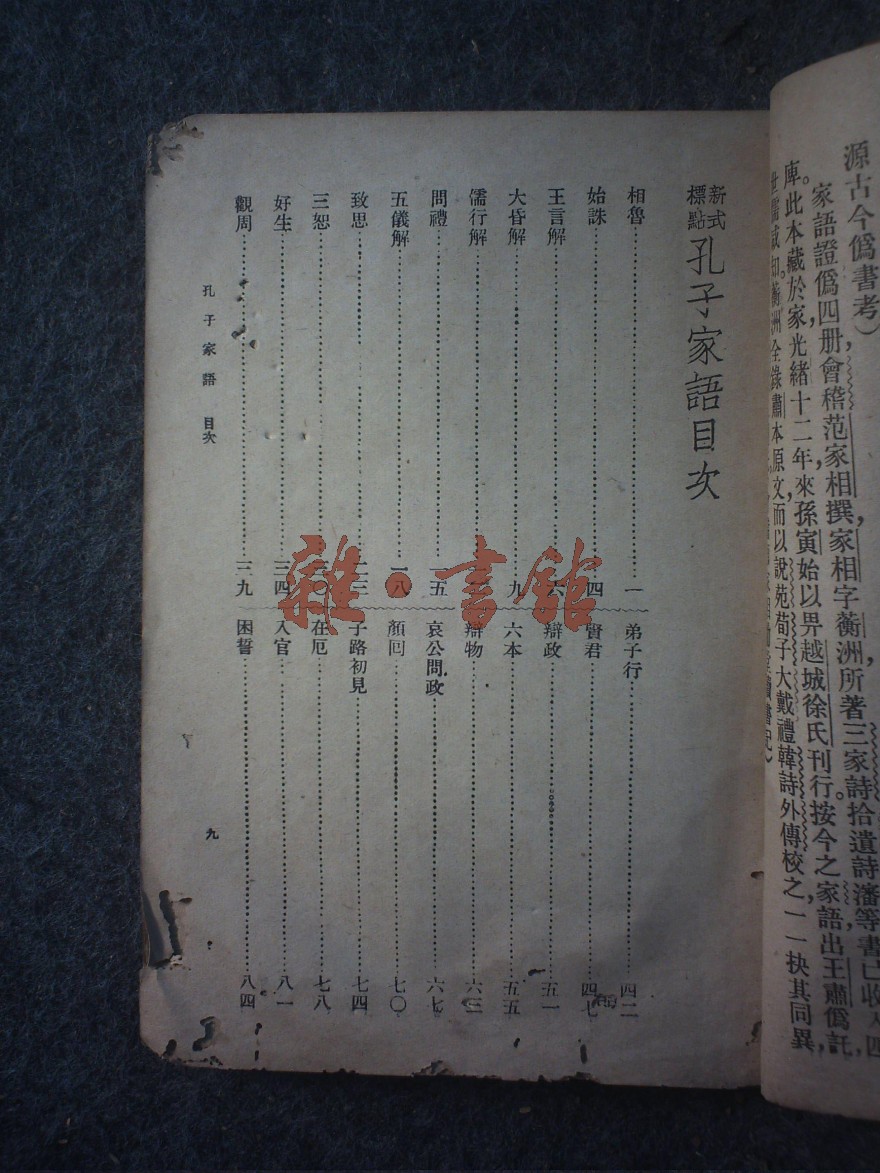 源古今僞書考）
家語證僞四册，會稽范家相撰，家相字蘅洲，所著三家詩拾遺詩瀋等書已收入四
庫。此本藏於家，光緒十二年來孫寅始以畀越城徐氏刊行。按今之家語出王肅僞託，
全錄肅本原文，而以說苑荀子大戴禮韓詩外傳校之，一一抉其同異，
新式
標點
孔子家語目次
相魯 一
始誅 四
王言解 六
大昏解 九
儒行解
問禮 一五
五儀解 一八
致思 二三
三恕
好生 三四
觀周 三九
弟子行 四二
賢君 四七
辯政 五一
六本 五五
辯物 六三
哀公問政 六七
顏囘 七〇
子路初見 七四
在厄 七八
入官 八一
困誓 八四
孔子家語 目次
九
雜·書館